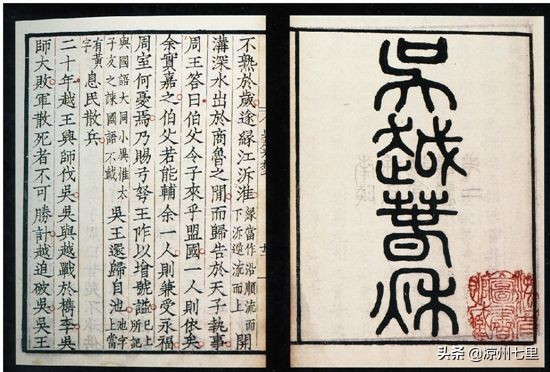 吳越春秋
不熟於歲遂緣江泝淮緣當作沿順流而下泝逆流而上開
溝深水出於商魯之閒而歸告於天子執事
周王答曰伯父令子來乎盟國一人則依矣
余實嘉之伯父若能輔余一人則兼受永福
周室何憂焉乃賜弓弩王阼以增號謚已上所記
與國語大同小異惟太子友之諫國語不載吳王還歸自池池字上當
有黃字息民散兵
二十年越王興師伐吳吳與越戰於檇李吳
師大敗軍散死者不可勝計越追破吳吳王
头条 @凉州七里